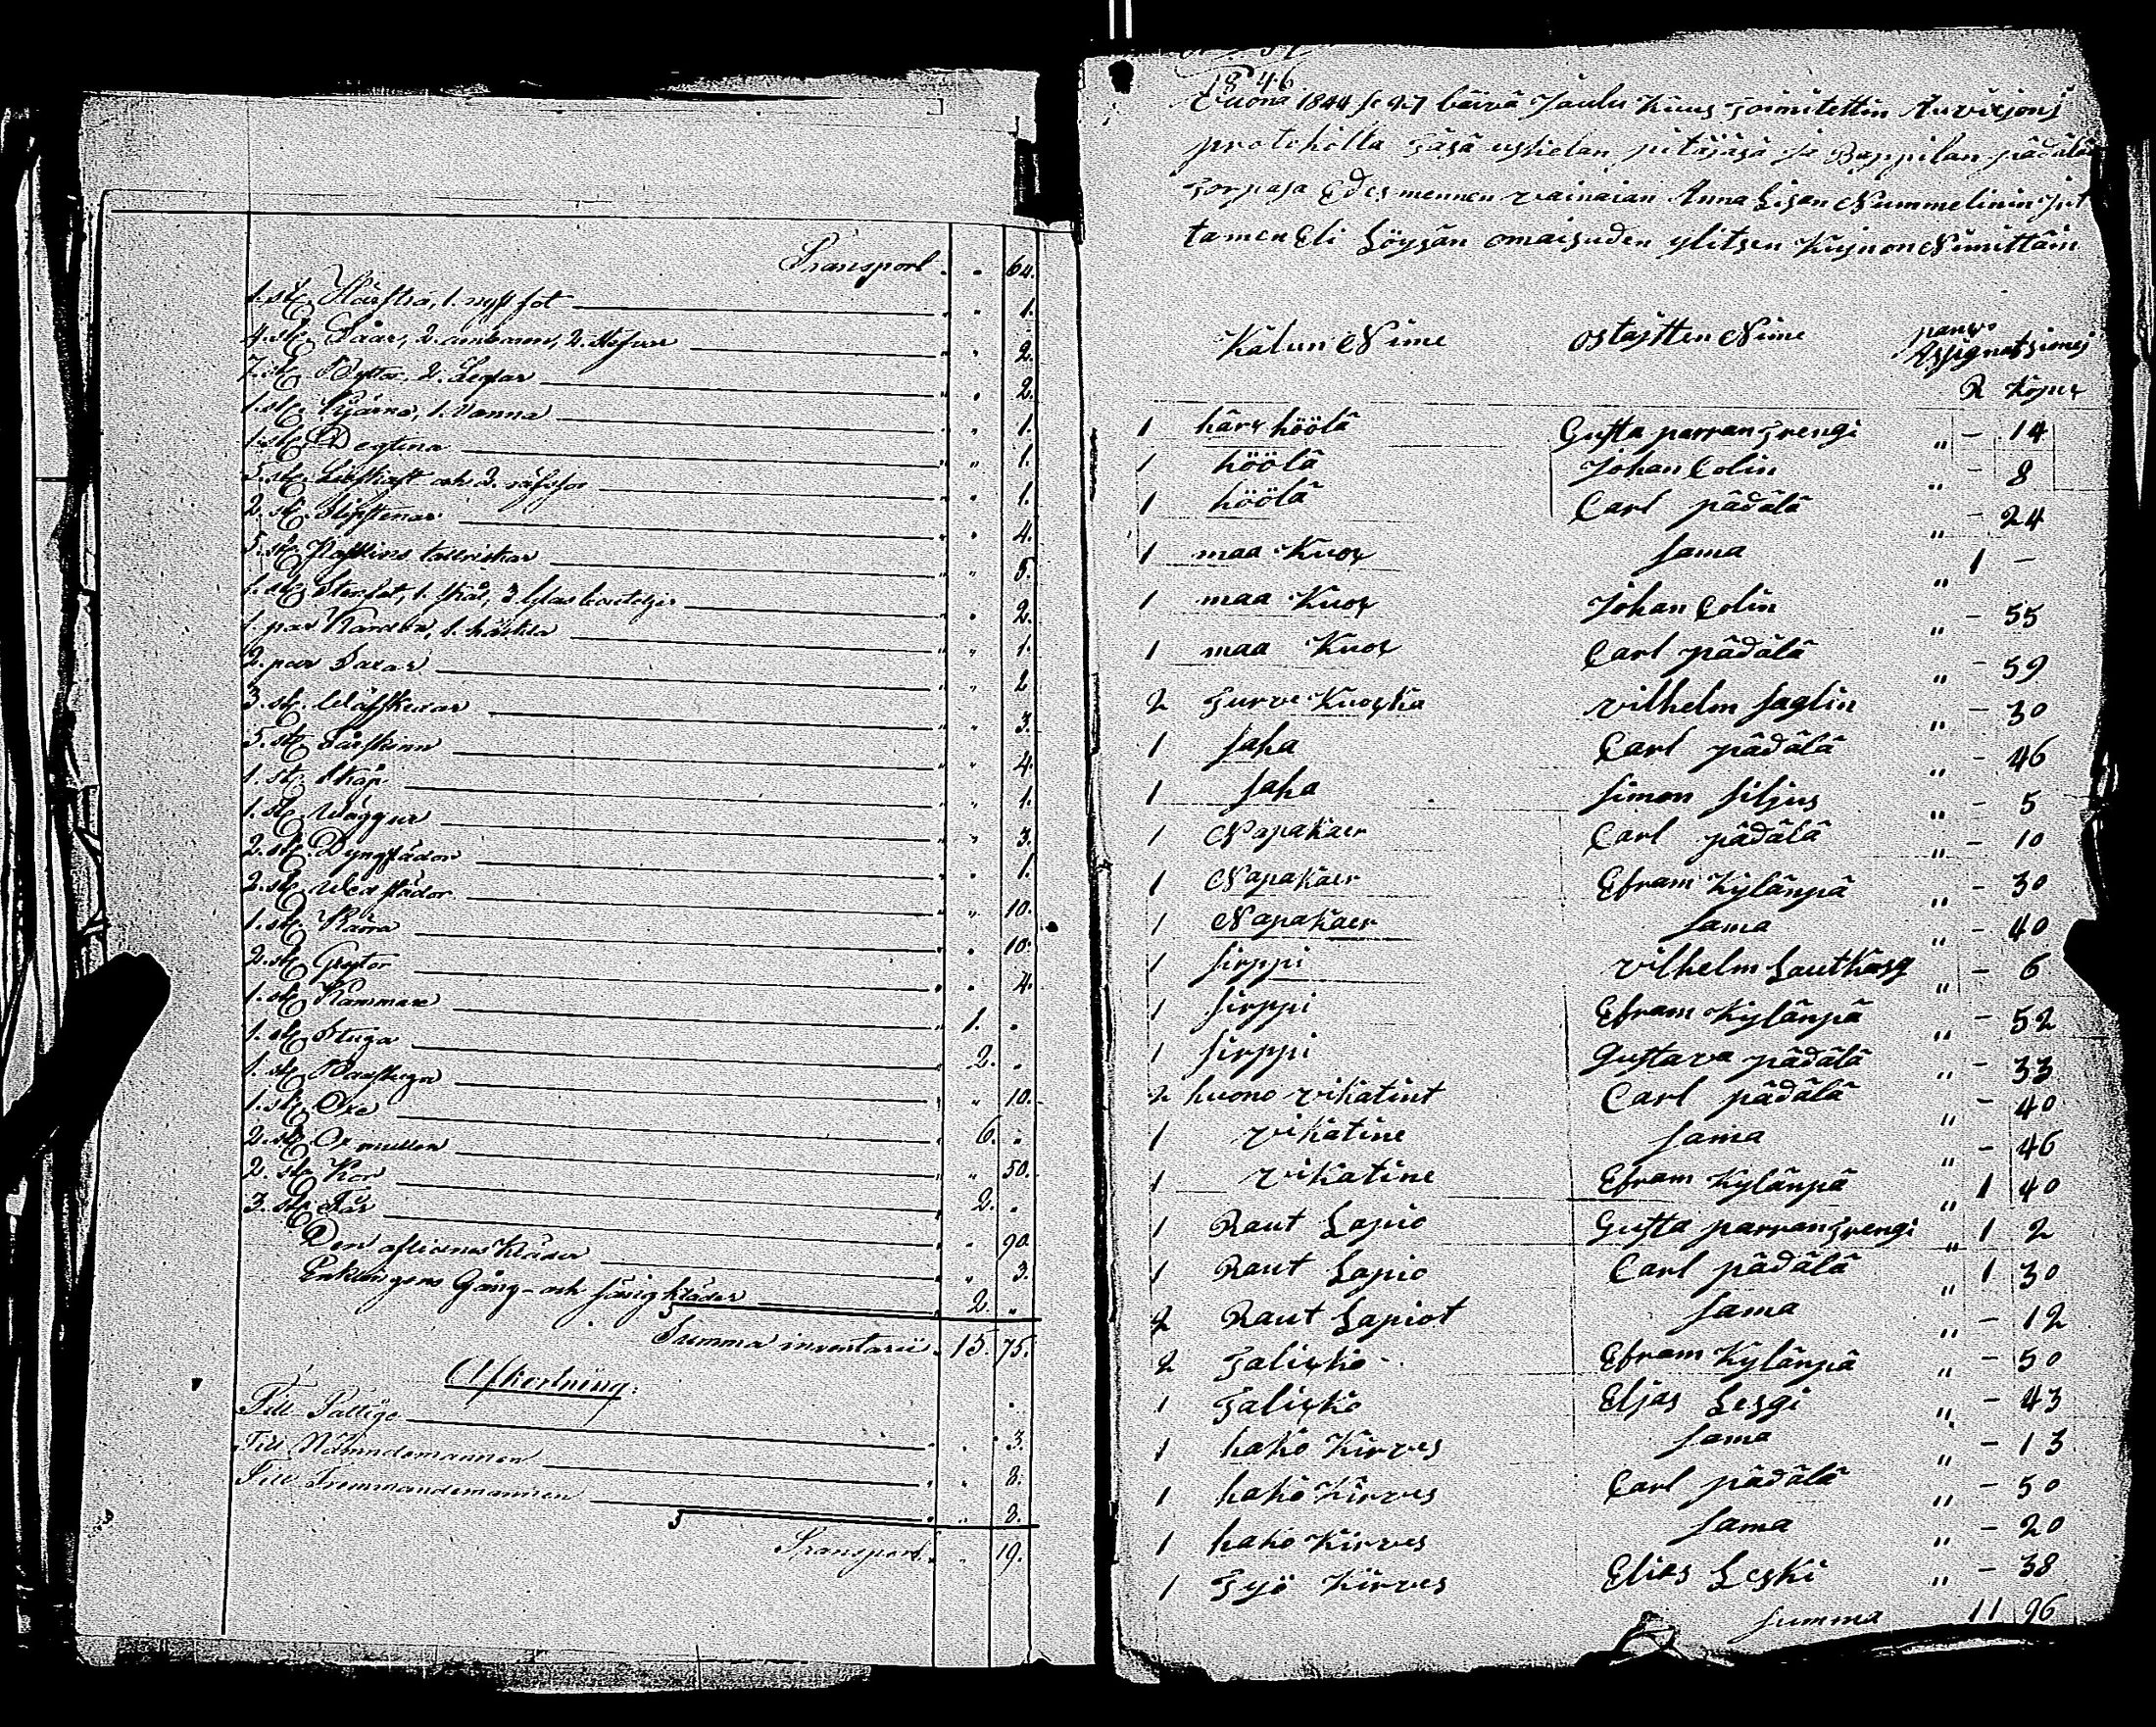 Transport " " 64.
1. st. 1. fot " " 1.
4. st. Såar, 2. ämbaren, 2. " " 2.
7. st. Byttor, 2. Leglar " " 2.
1. st. Kjärna, 1. Panna " " 1.
1. st. Degtina " " 1.
5. st. Lieskaft och 2. räfsor " " 1.
2. st. Slipstenar " " 4.
5. st. tallrickar " " 5.
1. st. Stenfat, 1. Skål, 3 Glas bouteljer " " 2.
1. par Kardor, 1. häckla " " 1.
2. par Saxar " " 2
3. st. Wäfskedar " " 3.
5. st. Fårskinn " " 4.
1. st. Skåp " " 1.
1. st. " " 3.
2. st. Dyngslädor " " 1.
2. st. Wedslädor " " 10.
1. st. Kärra " " 10.
2. st. Grytor " " 4.
1. st. Kammare " 1. "
1. st. Stuga " 2. "
1. st. Badstuga " " 10.
1. st. Oxe " 6. "
2. st. Oxmullen " " 50.
2. st. Kor " 2. "
3. st. Får " " 90.
Den aflidnes Kläder " " 3.
Enklingens Gång- och sängkläder " 2. "
Summa inventarii " 15. 75.
Afkortning:
Till Fattige " " 3.
Till Nämndemannen " " 8.
Till " " 8.
Transport " " 19.
1846
Vuona 1844 se 27 päivä Joulu Kuus Toimitettin Auvixjons
protokolla Täsä uskelan pitäjäsä ja Pappilan pädälä
Torpasa Edesmennen vainaian Anna Lisan Nummelinin Jrt
tamen Eli Löysän omaisuden ylitsen Kujnon Nimittäin
Kalun Nime ostajtten Nime panco Assignatsionis
R Kopex
1 härx höölä Gusta parran Trengi " - 14
1 höölä Johan Colin " - 8
1 höölä Carl pädälä " - 24
1 maa Kuox sama " 1 -
1 maa Kuox Johan Colin " - 55
1 maa Kuox Carl pädälä " - 59
2 Turve Kuoxka vilhelm saglin " - 30
1 saha Carl pädälä " - 46
1 saha simon siljus " - 5
1 Napakaer Carl pädälä " - 10
1 Napakaer Efram Kylänpä " - 30
1 Napakaer sama " - 40
1 sirppi vilhelm Lautkasg " - 6
1 sirppi Efram Kylänpä " - 52
1 sirppi Gustava pädälä " - 33
2 huono vikatint Carl pädälä " - 40
1 vikatine sama " - 46
1 vikatine Efram Kylänpä " 1 40
1 Raut Lapio Gusta parran Trengi " 1 2
1 Raut Lapio Carl pädälä " 1 30
2 Raut Lapiot sama " - 12
2 Talixko Efram Kylänpä " - 50
1 Talixko Eljas Lesgi " - 43
1 hako Kirves sama " - 13
1 hako Kirves Carl pädälä " - 50
1 hako Kirves sama " - 20
1 Työ Kirves Elies Leski " - 38
summa 11 96